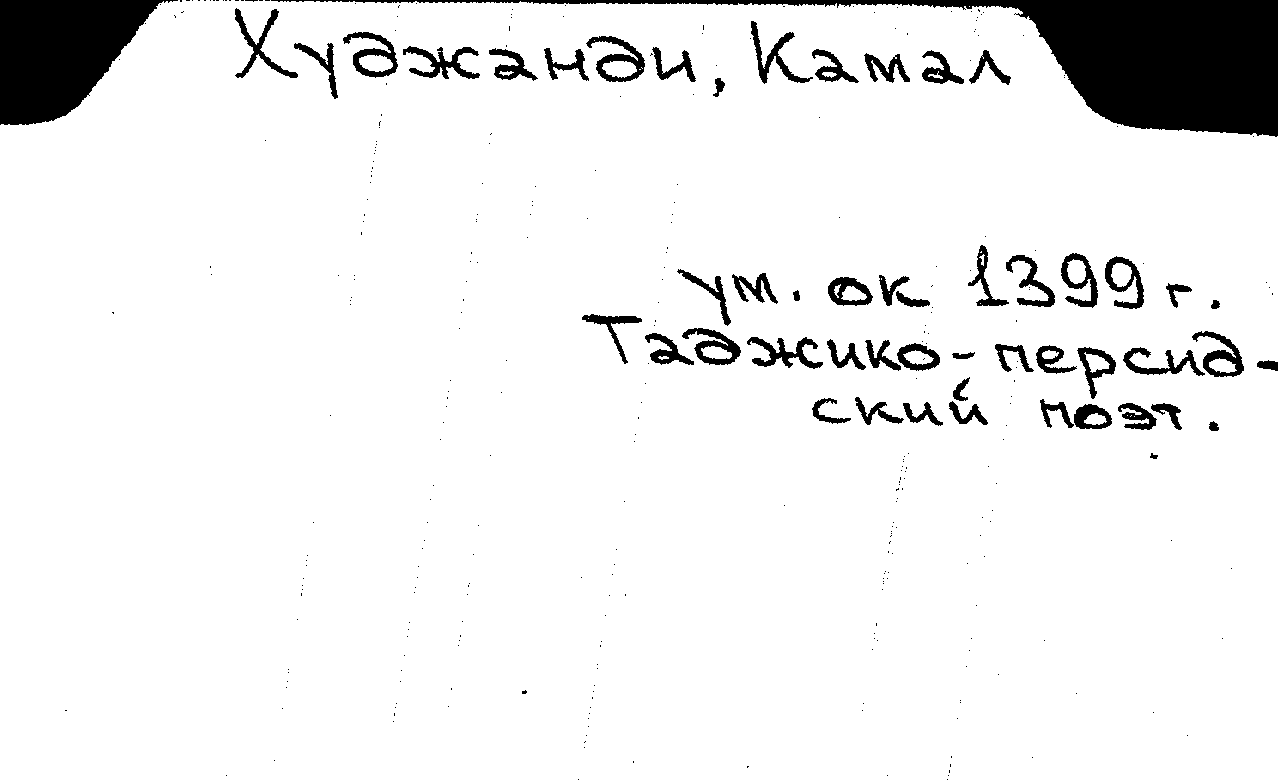 Худжанди, Камал
ум. ок 1399 г.
Таджико-персид-
ский поэт.